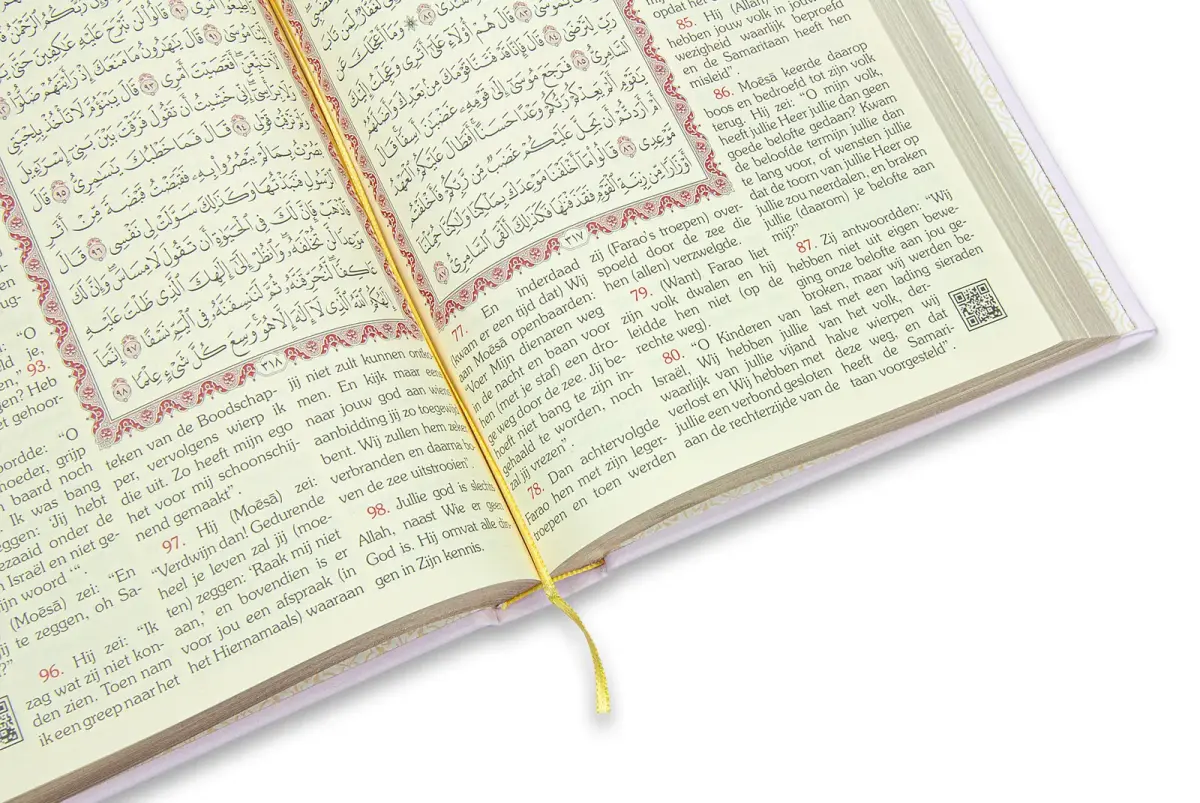 وَمَآ أَعْجَلَكَ عَن
يَٰمُوسَىٰ ٨٣ قَالَ هُمْ أُوْلَآءِ عَلَىٰٓ أَثَرِى وَعَجِلْتُ إِلَيْكَ
رَبِّ لِتَرْضَىٰ ٨٤ قَالَ فَإِنَّا قَدْ فَتَنَّا قَوْمَكَ مِنۢ بَعْدِكَ وَأَضَلَّهُمُ
ٱلسَّامِرِىُّ ٨٥ فَرَجَعَ مُوسَىٰٓ إِلَىٰ قَوْمِهِۦ غَضْبَٰنَ أَسِفًا قَالَ
يَٰقَوْمِ أَلَمْ يَعِدْكُمْ رَبُّكُمْ وَعْدًا حَسَنًا أَفَطَالَ عَلَيْكُمُ ٱلْعَهْدُ
أَمْ أَرَدتُّمْ أَن يَحِلَّ عَلَيْكُمْ غَضَبٌ مِّن رَّبِّكُمْ فَأَخْلَفْتُم
مَّوْعِدِى ٨٦ قَالُوا۟ مَآ أَخْلَفْنَا مَوْعِدَكَ بِمَلْكِنَا وَلَٰكِنَّا حُمِّلْنَآ
أَوْزَارًا مِّن زِينَةِ ٱلْقَوْمِ فَقَذَفْنَٰهَا فَكَذَٰلِكَ أَلْقَى ٱلسَّامِرِىُّ ٨٧
٣١٧
77. En inderdaad
(kwam er een tijd dat) Wij
aan Moēsā openbaarden:
"Voer Mijn dienaren weg
in de nacht en baan voor
hen (met je staf) een dro-
ge weg door de zee. Jij be-
hoeft niet bang te zijn in-
gehaald te worden, noch
zal jij vrezen".
78. Dan achtervolgde
Farao hen met zijn leger-
troepen en toen werden
zij (Farao's troepen) over-
spoeld door de zee die
hen (allen) verzwolgde.
79. (Want) Farao liet
zijn volk dwalen en hij
leidde hen niet (op de
rechte weg).
80. "O Kinderen van
Israël, Wij hebben jullie
waarlijk van jullie vijand
verlost en Wij hebben met
jullie een verbond gesloten
aan de rechterzijde van de
opdat het
85. Hij (Allah)
hebben jouw volk in jouw
wezigheid waarlijk beproefd
en de Samaritaan heeft hen
misleid".
86. Moēsā keerde daarop
boos en bedroefd tot zijn volk
terug. Hij zei: "O mijn volk,
heeft jullie Heer jullie dan geen
goede belofte gedaan? Kwam
de beloofde termijn jullie dan
te lang voor, of wensten jullie
dat de toorn van jullie Heer op
jullie zou neerdalen, en braken
jullie (daarom) je belofte aan
mij?"
87. Zij antwoordden: "Wij
hebben niet uit eigen bewe-
ging onze belofte aan jou ge-
broken, maar wij werden be-
last met een lading sieraden
van het volk, der-
halve wierpen wij
deze weg, en dat
heeft de Samari-
taan voorgesteld".
قَالُوا۟ لَن نَّبْرَحَ عَلَيْهِ عَٰكِفِينَ حَتَّىٰ
مُوسَىٰ ٩١ قَالَ يَٰهَٰرُونُ مَا مَنَعَكَ إِذْ رَأَيْتَهُمْ ضَلُّوٓا۟
تَتَّبِعَنِ أَفَعَصَيْتَ أَمْرِى ٩٣ قَالَ يَبْنَؤُمَّ لَا تَأْخُذْ بِلِحْيَتِى
وَلَا بِرَأْسِىٓ إِنِّى خَشِيتُ أَن تَقُولَ فَرَّقْتَ بَيْنَ بَنِىٓ إِسْرَٰٓءِيلَ
وَلَمْ تَرْقُبْ قَوْلِى ٩٤ قَالَ فَمَا خَطْبُكَ يَٰسَٰمِرِىُّ ٩٥ قَالَ
بَصُرْتُ بِمَا لَمْ يَبْصُرُوا۟ بِهِۦ فَقَبَضْتُ قَبْضَةً مِّنْ أَثَرِ
ٱلرَّسُولِ فَنَبَذْتُهَا وَكَذَٰلِكَ سَوَّلَتْ لِى نَفْسِى ٩٦ قَالَ
فَٱذْهَبْ فَإِنَّ لَكَ فِى ٱلْحَيَوٰةِ أَن تَقُولَ لَا مِسَاسَ وَإِنَّ لَكَ
مَوْعِدًا لَّن تُخْلَفَهُۥ وَٱنظُرْ إِلَىٰٓ إِلَٰهِكَ ٱلَّذِى ظَلْتَ عَلَيْهِ
عَاكِفًا لَّنُحَرِّقَنَّهُۥ ثُمَّ لَنَنسِفَنَّهُۥ فِى ٱلْيَمِّ نَسْفًا ٩٧ إِنَّمَآ
إِلَٰهُكُمُ ٱللَّهُ ٱلَّذِى لَآ إِلَٰهَ إِلَّا هُوَ وَسِعَ كُلَّ شَىْءٍ عِلْمًا ٩٨
٣١٨
"O
93.
Heb
gehoor-
"O
grijp
baard noch
Ik was bang
zeggen: 'Jij hebt
onder de
Israël en niet ge-
woord'".
(Moēsā) zei: "En
te zeggen, oh Sa-
96. Hij zei: "Ik
zag wat zij niet kon-
den zien. Toen nam
ik een greep naar het
teken van de Boodschap-
per, vervolgens wierp ik
die uit. Zo heeft mijn ego
het voor mij schoonschij-
nend gemaakt".
97. Hij (Moēsā) zei:
"Verdwijn dan! Gedurende
heel je leven zal jij (moe-
ten) zeggen: Raak mij niet
aan,' en bovendien is er
voor jou een afspraak (in
het Hiernamaals) waaraan
jij niet zult kunnen ontko-
men. En kijk maar eens
naar jouw god aan wiens
aanbidding jij zo toegewijd
bent. Wij zullen hem zeker
verbranden en daarna bo-
ven de zee uitstrooien".
98. Jullie god is slechts
Allah, naast Wie er geen
God is. Hij omvat alle din-
gen in Zijn kennis.